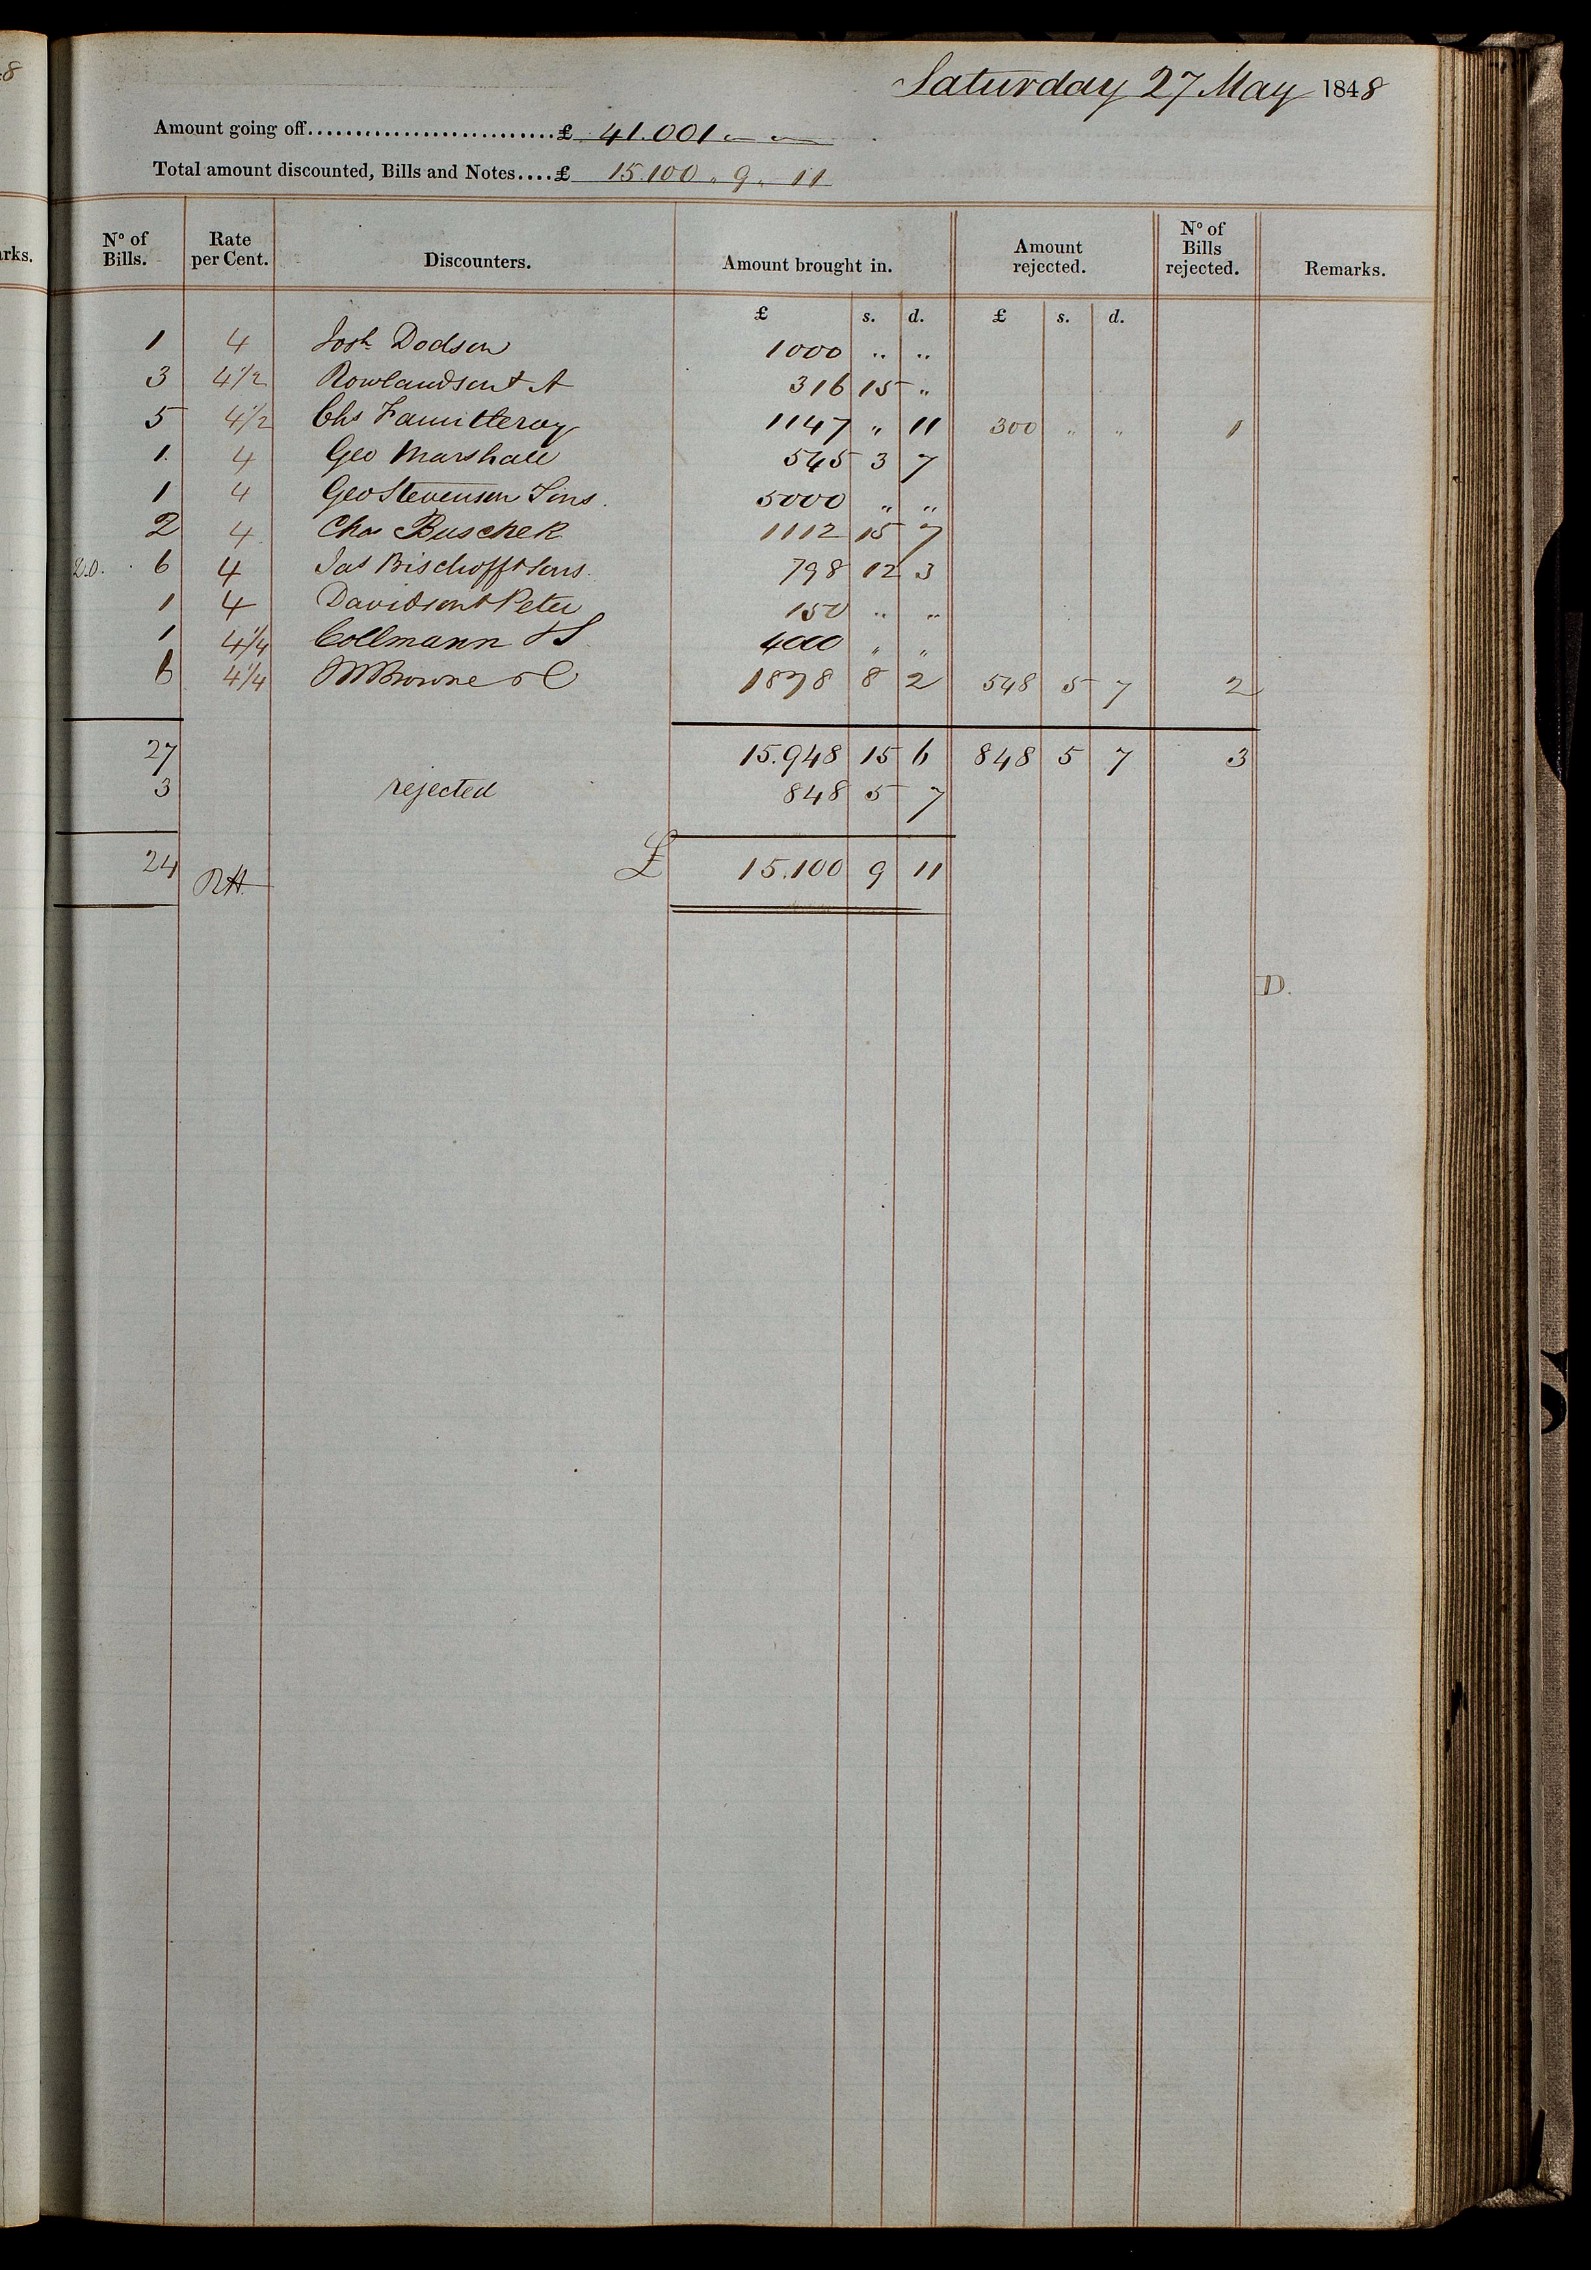 8
Saturday 27 May 1848
Amount going off..........................£ 41.001 " "
Total amount discounted, Bills and Notes....£ 15.100 " 9 " 11
arks.
No of Bills. Rate per Cent. Discounters. Amount brought in. Amount rejected. No of Bills rejected. Remarks.
£ s. d. £ s. d.
1 4 Josh Dodson 1000 " "
3 4 1/2 Rowlandson & A 316 15 "
5 4 1/2 Chs Fauntleroy 1147 " 11 300 " " 1
1 4 Geo Marshall 545 3 7
1 4 Geo Stevenson Sons 5000 " "
2 4 Chas Buschek 1112 15 7
6 4 Jas Bischoff & Sons 798 12 3
1 4 Davidson & Peter 150 " "
1 4 1/4 Collmann & S 4000 " "
6 4 1/4 Browne & C 1878 8 2 548 5 7 2
27 15.948 15 6 848 5 7 3
3 rejected 848 5 7
24 RH £ 15.100 9 11
D.